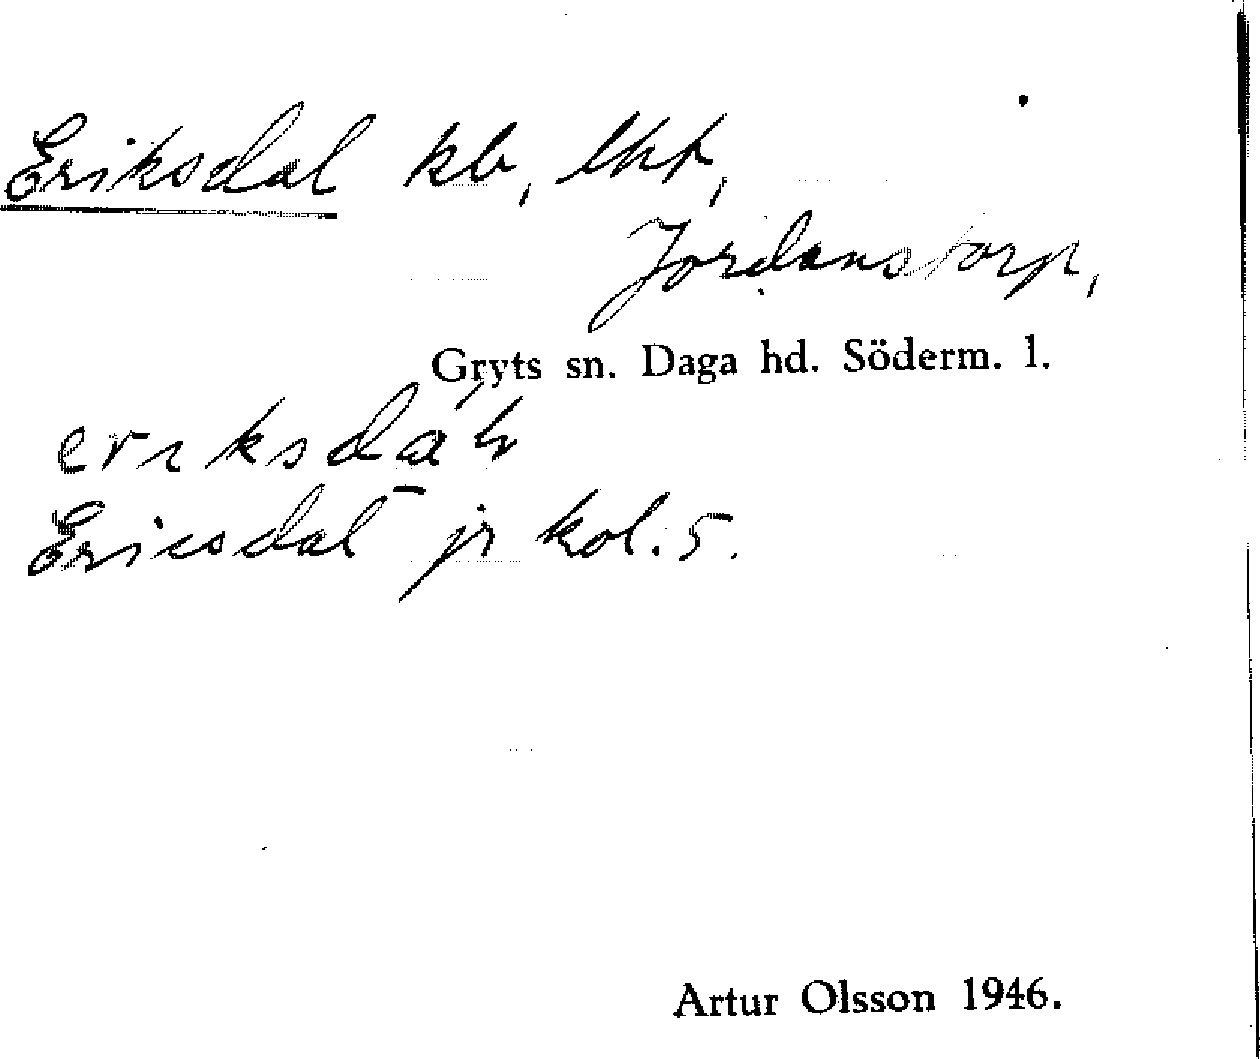 Eriksdal kb, lht,
Jordanstorp,
Gryts sn. Daga hd. Söderm. l.
Ericsdal jr kol. 5.
Artur Olsson 1946.